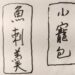 小籠包
魚刺羹